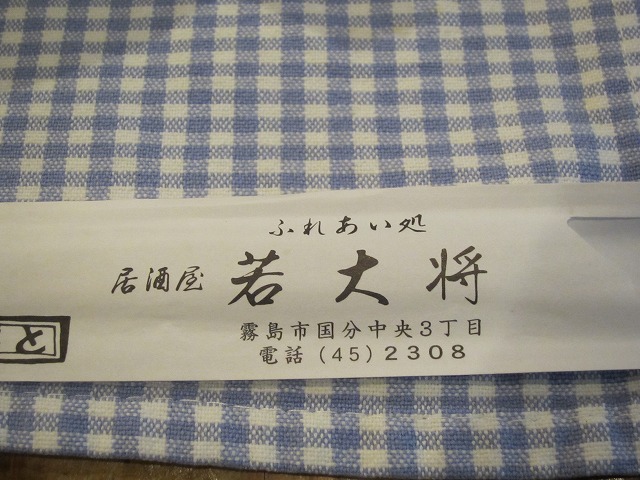 ふれあい処
居酒屋 若大将
霧島市国分中央3丁目
電話 (45) 2308